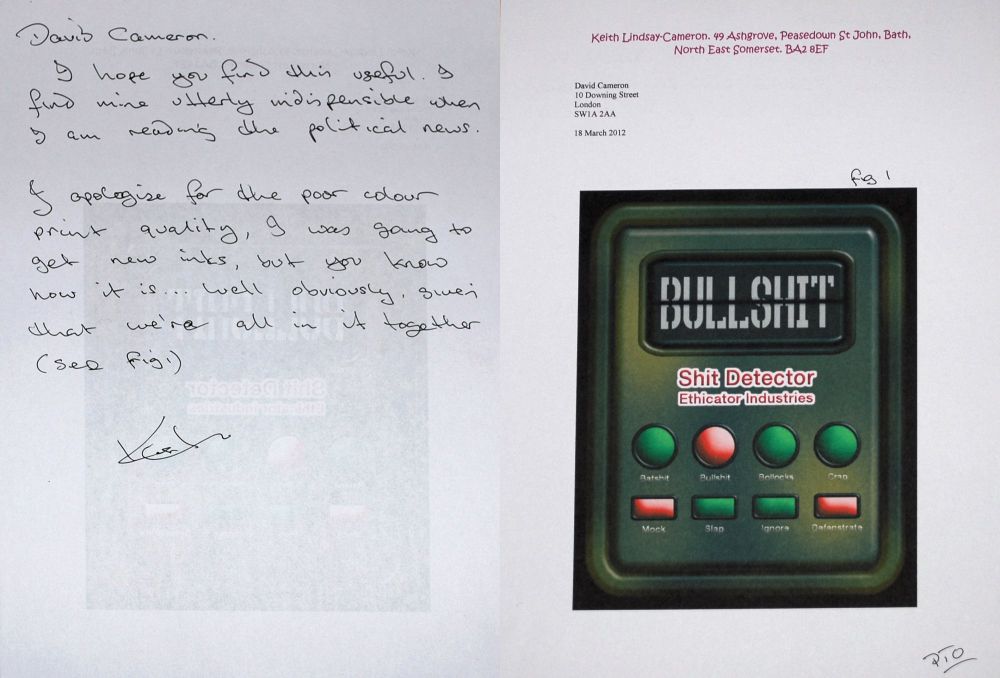 David Cameron.
I hope you find this useful. I
find mine utterly indispensible when
I am reading the political news.
I apologise for the poor colour
print quality, I was going to
get new inks, but you know
how it is... Well obviously, given
that we're all in it together
(see fig1)
Keith
Keith Lindsay-Cameron. 49 Ashgrove, Peasedown St John, Bath,
North East Somerset. BA2 8EF
David Cameron
10 Downing Street
London
SW1A 2AA
18 March 2012
fig 1
BULLSHIT
Shit Detector
Ethicator Industries
Batshit Bullshit Bollocks Crap
Mock Slap Ignore Defenstrate
PTO